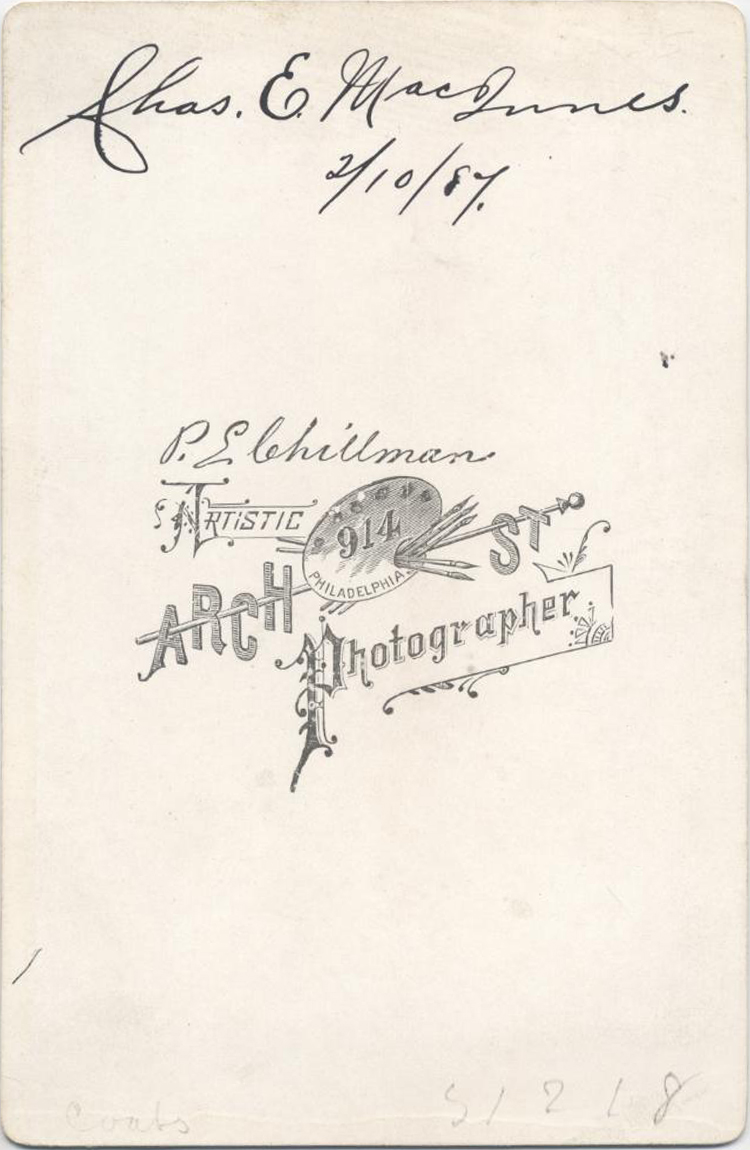 Chas. E. MacInnes.
2/10/87.
P. E. Chillman
ARTISTIC
914
PHILADELPHIA.
ARCH ST
Photographer